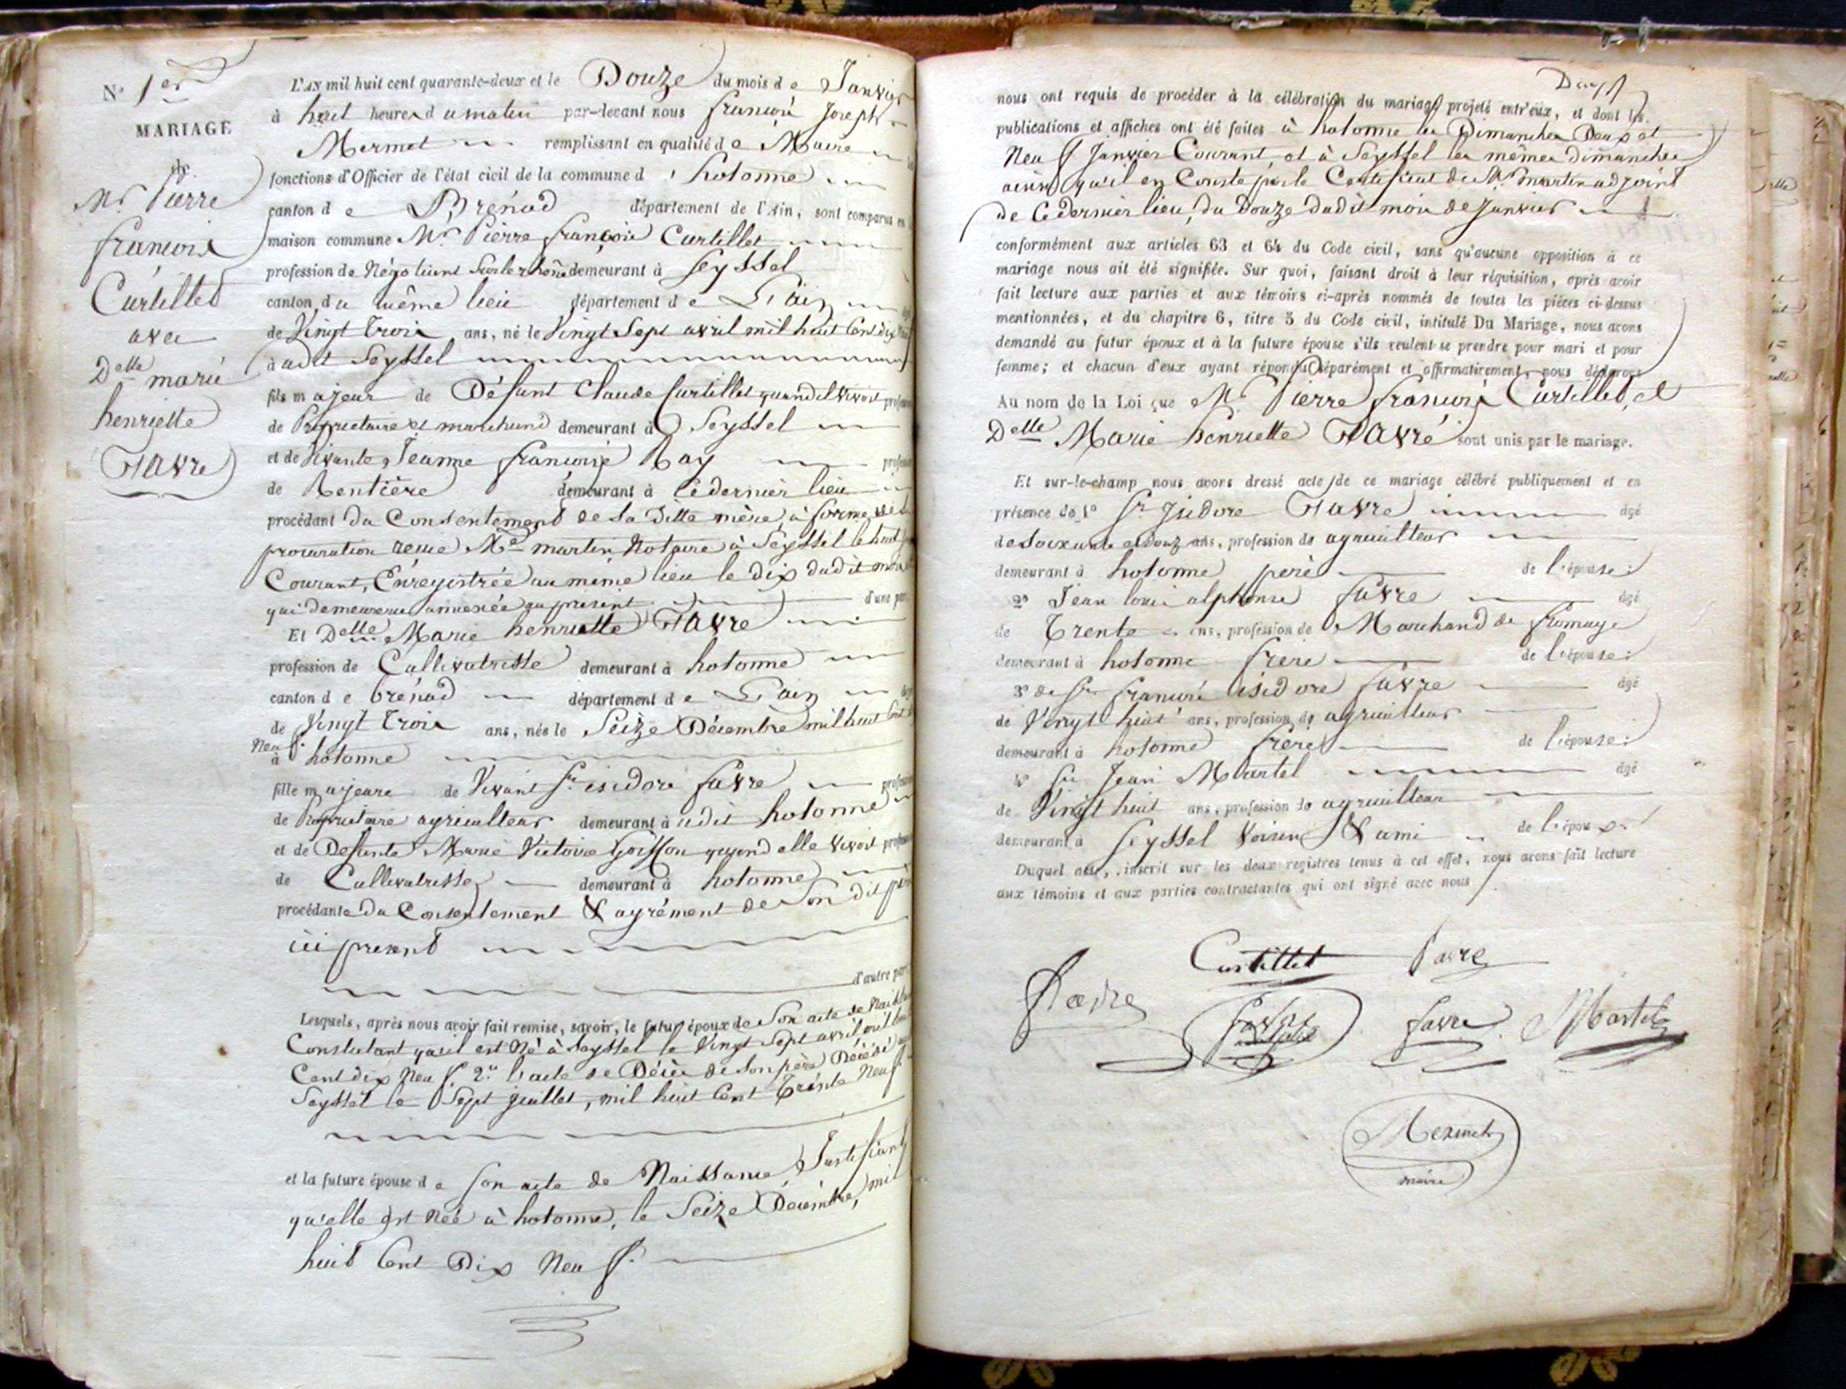 N° 1er
MARIAGE
de
Mr Pierre
françois
Curtillet
avec
Delle marie
henriette
FAVRE
L'AN mil huit cent quarante-deux et le Douze du mois de Janvier
à huit heures du matin par-devant nous françois Joseph
Mermet remplissant en qualité de Maire
fonctions d'Officier de l'état civil de la commune d'hotonne
canton de Brénod département de l'Ain, sont comparus en
maison commune Mr Pierre françois Curtillet
profession de Négotiant sur le rhône demeurant à Seyssel
canton du même lieu département de L'ain
de Vingt trois ans, né le Vingt Sept avril mil huit Cent dix
à udit Seyssel
fils majeur de Défunt Claude Curtillet quand il Vivoit
de Propriétaire et marchand demeurant à Seyssel
et de Vivante Jeanne françoise Ray
de Rentière demeurant à Ce dernier lieu
procédant du Consentement de Sa ditte mère, à forme de
procuration reçue Me martin Notaire à Seyssel le huit
Courant, Enregistrée au même lieu le dix dudit mois
qui demeurera annexée au présent d'une part
Et Delle Marie henriette FAVRE
profession de Cultivatrisse demeurant à hotonne
canton de brénod département de L'ain
de Vingt Trois ans, née le Seize Décembre mil huit Cent
Neuf.
à hotonne
fille majeure de Vivant Sr isidore favre
de Propriétaire agriculteur demeurant à udit hotonne
et de Défunte Marie Victoire Goisson quand elle Vivoit
de Cultivatrisse demeurant à hotonne
procédante du Consentement & agrément de Son dit père
ici présent
d'autre part
Lesquels, après nous avoir fait remise, savoir, le futur époux de Son acte de Naissance
Constatant qu'il est Né à Seyssel le Vingt Sept avril mil huit
Cent dix Neuf. 2° l'acte de Décès de Son père Décédé
Seyssel le Sept juillet, mil huit Cent Trente Neuf
et la future épouse de Son acte de Naissance Justifiant
qu'elle est Née à hotonne, le Seize Décembre, mil
huit Cent Dix Neuf.
nous ont requis de procéder à la célébration du mariage projeté entr'eux, et dont les
publications et affiches ont été faites à hotonne les Dimanches Deux et
Neuf Janvier Courant, et à Seyssel les mêmes dimanches
ainsi qu'il en Conste par le Certificat de Mr martin adjoint
de Ce dernier lieu, du Douze dudit mois de Janvier
conformément aux articles 63 et 64 du Code civil, sans qu'aucune opposition à ce
mariage nous ait été signifiée. Sur quoi, faisant droit à leur réquisition, après avoir
fait lecture aux parties et aux témoins ci-après nommés de toutes les pièces ci-dessus
mentionnées, et du chapitre 6, titre 5 du Code civil, intitulé Du Mariage, nous avons
demandé au futur époux et à la future épouse s'ils veulent se prendre pour mari et pour
femme; et chacun d'eux ayant répondu séparément et affirmativement, nous déclarons
Au nom de la Loi que Mr Pierre françois Curtillet, et
Delle Marie henriette FAVRE sont unis par le mariage.
Et sur-le-champ nous avons dressé acte de ce mariage célébré publiquement et en
présence de 1° Sr Isidore FAVRE âgé
de Soixante et douz ans, profession de agriculteur
demeurant à hotonne père de l'épouse;
2° Jean louis alphonse favre âgé
de Trente ans, profession de Marchand de fromage
demeurant à hotonne frère de l'épouse;
3° de Sr françois isidore favre âgé
de Vingt huit ans, profession de agriculteur
demeurant à hotonne frère de l'épouse;
4° Sr Jean Martel âgé
de Vingt huit ans, profession de agriculteur
demeurant à Seyssel Voisin & ami de l'époux
Duquel acte, inscrit sur les deux registres tenus à cet effet, nous avons fait lecture
aux témoins et aux parties contractantes qui ont signé avec nous
Curtillet favre
favre favre favre Martel
Mermet
maire